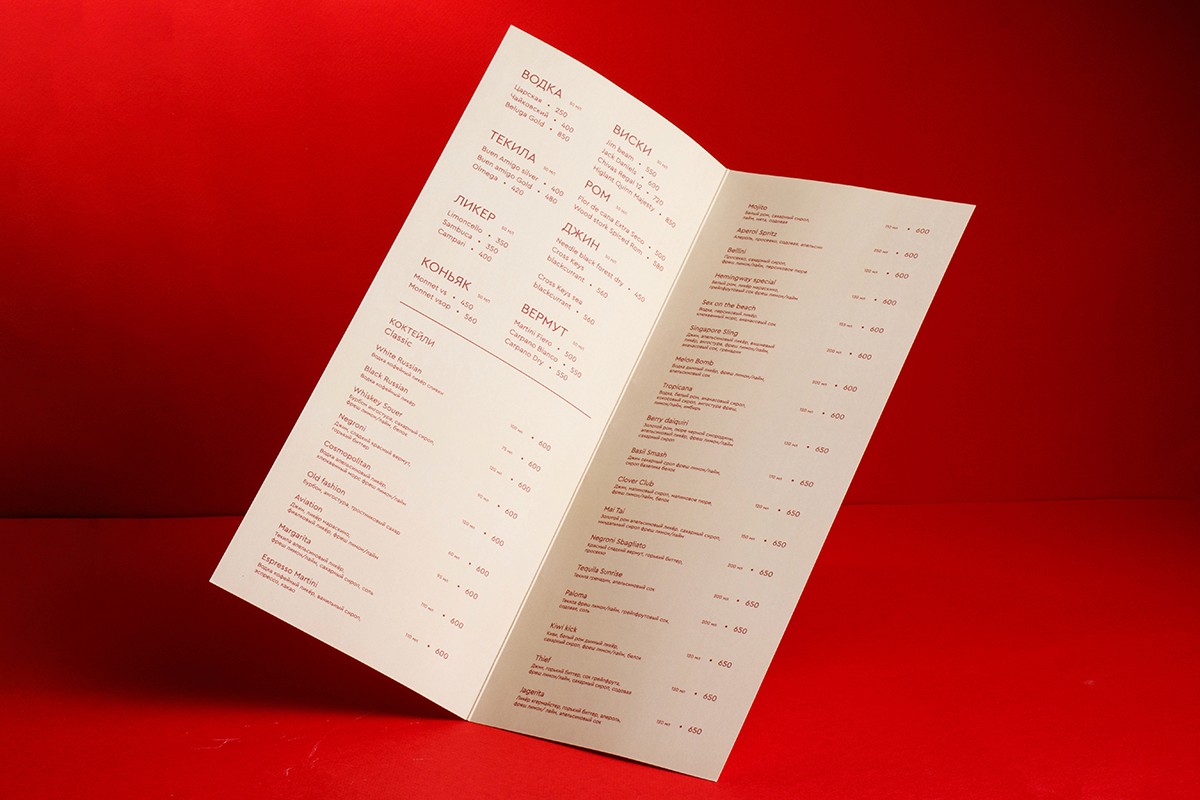 ВОДКА 50 мл
Царская • 250
Чайковский • 400
Beluga Gold • 850
ТЕКИЛА 50 мл
Buen Amigo silver • 400
Buen amigo Gold • 480
Olmega • 420
ЛИКЕР 50 мл
Limoncello • 350
Sambuca • 350
Campari • 400
КОНЬЯК 50 мл
Monnet vs • 450
Monnet vsop • 560
ВИСКИ 50 мл
Jim beam • 550
Jack Daniels • 600
Chivas Regal 12 • 720
Higlant Qyinn Majesty • 850
РОМ 50 мл
Flor de cana Extra Seco • 500
Wood stork Spiced Rom • 580
ДЖИН 50 мл
Needle black forest dry • 450
Cross Keys
blackcurrant • 560
Cross Keys sea
blackcurrant • 560
ВЕРМУТ 50 мл
Martini Fiero • 500
Carpano Bianco • 550
Carpano Dry • 550
КОКТЕЙЛИ
Classic
White Russian
Водка кофейный ликёр сливки
120 мл • 600
Black Russian
Водка кофейный ликёр
75 мл • 600
Whiskey Souer
Бурбон, ангостура, сахарный сироп,
фреш лимон/лайм, белок
120 мл • 600
Negroni
Джин, сладкий красный вермут,
горький биттер
90 мл • 600
Cosmopolitan
Водка апельсиновый ликёр,
клюквенный морс фреш лимон/лайм
120 мл • 600
Old fashion
Бурбон, ангостура, тростниковый сахар
60 мл • 600
Aviation
Джин, ликёр мараскино,
фиалковый ликёр, фреш лимон/лайм
90 мл • 600
Margarita
Текила апельсиновый ликёр,
фреш лимон/лайм, сахарный сироп, соль
110 мл • 600
Espresso Martini
Водка кофейный ликёр, ванильный сироп,
эспрессо, какао
110 мл • 600
Mojito
Белый ром, сахарный сироп,
лайм, мята, содовая
• 600
Aperol Spritz
Апероль, просекко, содовая, апельсин
• 600
Bellini
Просекко, сахарный сироп,
фреш лимон/лайм, персиковое пюре
• 600
Hemingway special
Белый ром, ликёр мараскино,
грейпфрутовый сок фреш лимон/лайм
• 600
Sex on the beach
Водка, персиковый ликёр,
клюквенный морс, ананасовый сок
• 600
Singapore Sling
Джин, апельсиновый ликёр, вишневый
ликёр, ангостура, фреш лимон/лайм,
ананасовый сок, гренадин
200 мл • 600
Melon Bomb
Водка дынный ликёр, фреш лимон/лайм,
апельсиновый сок
200 мл • 600
Tropicana
Водка, белый ром, ананасовый сироп,
кокосовый сироп, ангостура фреш,
лимон/лайм, имбирь
• 600
Berry daiquiri
Золотой ром, пюре черной смородины,
апельсиновый ликёр, фреш лимон/лайм
сахарный сироп
• 650
Basil Smash
Джин сахарный сроп фреш лимон/лайм,
сироп базилика белок
110 мл • 650
Clover Club
Джин, малиновый сироп, малиновое пюре,
фреш лимон/лайм, белок
• 650
Mai Tai
Золотой ром апельсиновый ликёр, сахарный сироп,
миндальный сироп фреш лимон/лайм
• 650
Negroni Sbagliato
Красный сладкий вермут, горький биттер,
просекко
200 мл • 650
Tequila Sunrise
Текила гренадин, апельсиновый сок
200 мл • 650
Paloma
Текила фреш лимон/лайм, грейпфрутовый сок,
содовая, соль
200 мл • 650
Kiwi kick
Киви, белый ром дынный ликёр,
сахарный сироп, фреш лимон/лайм, белок
120 мл • 650
Thief
Джин, горький биттер, сок грейпфрута,
фреш лимон/лайм, сахарный сироп, содовая
120 мл • 650
Jagerita
Ликёр егермейстер, горький биттер, апероль,
фреш лимон/ лайм, апельсиновый сок
120 мл • 650